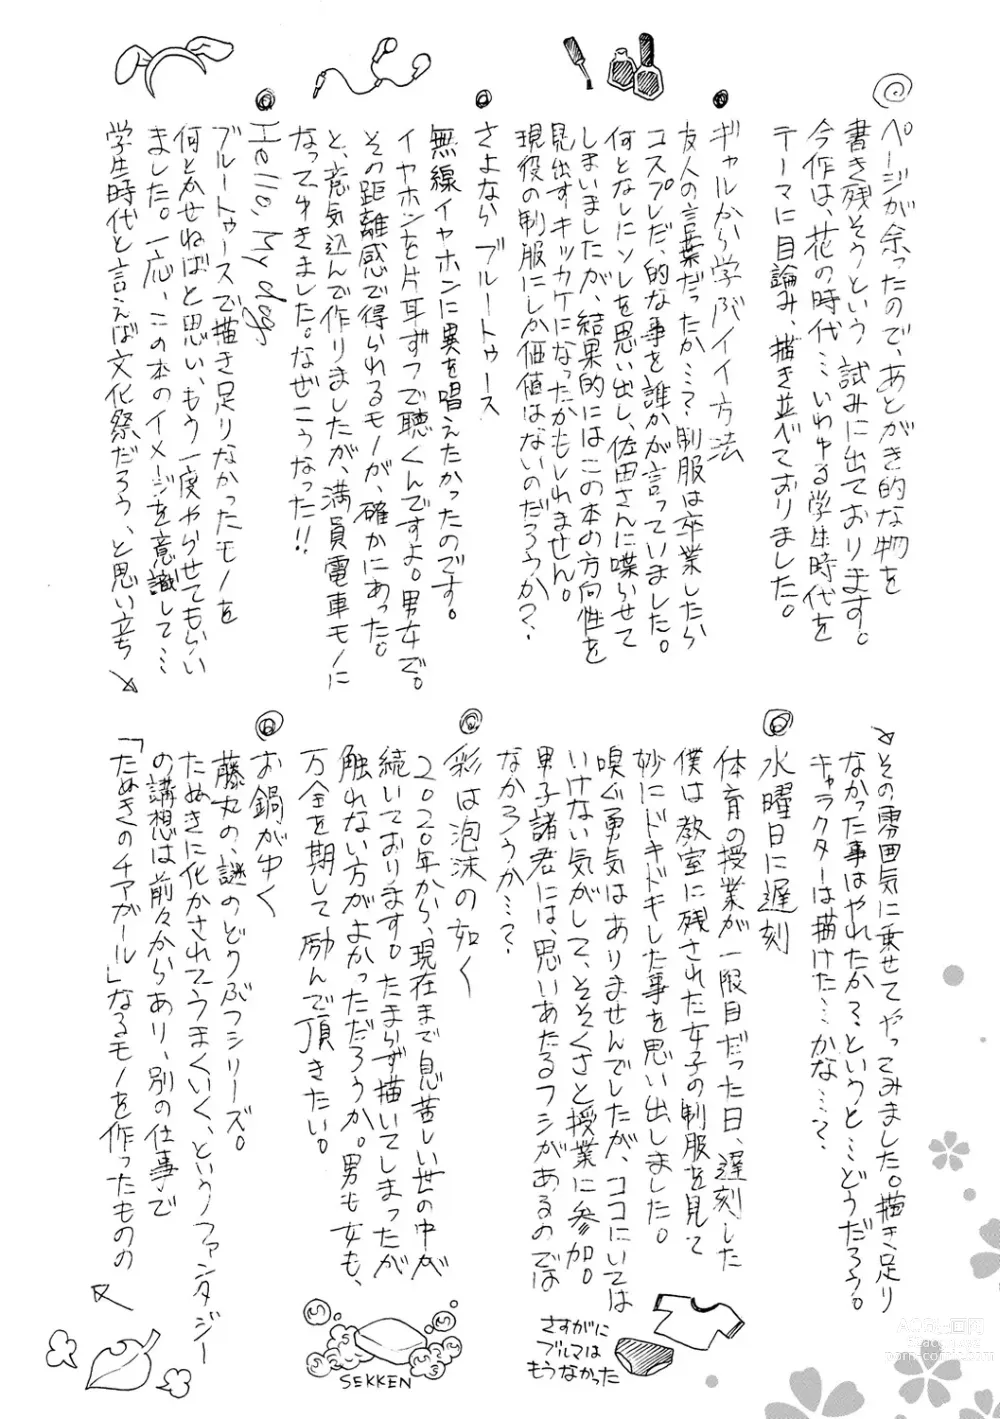 ページが余ったので、あとがき的な物を
書き残そうという、試みに出ております。
今作は、花の時代…いわゆる学生時代を
テーマに目論み、描き並べておりました。
ギャルから学ぶイイ方法
友人の言葉だったか…？制服は卒業したら
コスプレだ、的な事を誰かが言っていました。
何となしにソレを思い出し、佐田さんに喋らせて
しまいましたが、結果的にはこの本の方向性を
見出すキッカケになったかもしれません。
現役の制服にしか価値はないのだろうか？
さよならブルートゥース
無線イヤホンに異を唱えたかったのです。
イヤホンを片耳ずつで聴くんですよ。男女で。
その距離感で得られるモノが、確かにあった。
と、意気込んで作りましたが、満員電車モノに
なってゆきました。なぜこうなった!!
Hello, My dog
ブルートゥースで描き足りなかったモノを
何とかせねばと思い、もう一度やらせてもらい
ました。一応、この本のイメージを意識して…
学生時代と言えば文化祭だろう、と思い立ち
その雰囲気に乗せてやってみました。描き足り
なかった事はやれたか？、というと…どうだろう。
キャラクターは描けた…かな…？
水曜日に遅刻
体育の授業が一限目だった日、遅刻した
僕は教室に残された女子の制服を見て
妙にドキドキした事を思い出しました。
嗅ぐ勇気はありませんでしたが、ココにいては
いけない気がして、そそくさと授業に参加。
男子諸君には、思いあたるフシがあるのでは
なかろうか…？
さすがに
ブルマは
もうなかった
彩は泡沫の如く
2020年から、現在まで息苦しい世の中が
続いております。たまらず描いてしまったが
触れない方がよかっただろうか。男も女も、
万全を期して励んで頂きたい。
SEKKEN
お鍋が中く
藤丸の、謎のどうぶつシリーズ。
たぬきに化かされてうまくいく、というファンタジー
の講想は前々からあり、別の仕事で
「たぬきのチアガール」なるモノを作ったものの